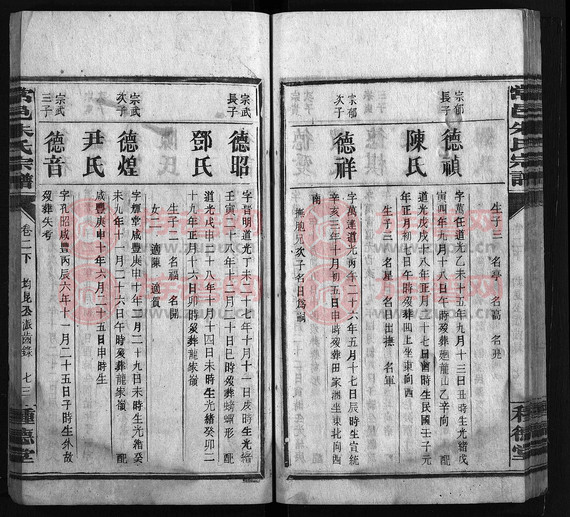 常邑朱氏宗譜
生子三 名亭 名高 名亮
宗郁長子
德禎
字萬在道光乙未十五年九月十三日丑時生光緒戊
寅四年九月八日午時歿葬廻龍山乙辛向 配
陳氏
道光戊戌十八年正月二十七日酉時生民國壬子元
年正月初七日午時歿葬凹上坐東向西
生子三 名星 名日出撫 名軍
宗郁次子
德祥
字萬達道光丙午二十六年五月十七日辰時生宣統
辛亥三年十月初五日申時歿葬田家洲坐東北向西
南
撫胞兄次子名日爲嗣
宗武長子
德昭
字晉明道光丁未二十七年十月十一日戌時生光緒
壬寅二十八年十二月二十日巳時歿葬螃蟹形 配
鄧氏
道光戊申二十八年八月十四日未時生光緒癸卯二
十九年正月十六日卯時歿葬龍家嶺
生子二 名福 名開
女 適陳 適賀
宗武次子
德煌
字輝堂咸豐庚申十年二月二十九日未時生光緒癸
未九年十一月二十六日午時歿葬龍家嶺 配
尹氏
咸豐庚申十年六月二十五日申時生
宗武三子
德音
字孔昭咸豐丙辰六年十一月二十五日子時生朱故
歿葬失考
常邑朱氏宗譜
卷二下
七三
種德堂